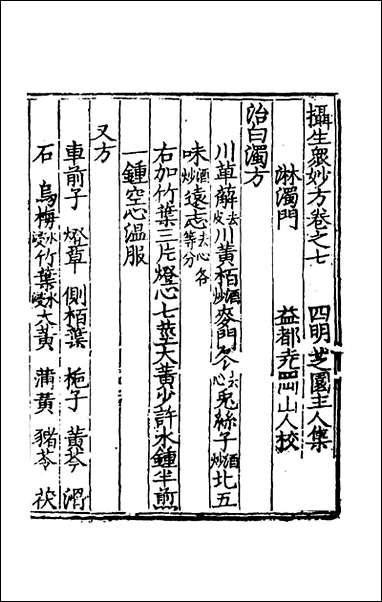 攝生衆妙方卷之七　四明芝園主人集
淋濁門　益都尭岡山人校
治白濁方
川萆薢去皮川黃栢酒炒麥門冬去心兎絲子酒炒北五
味酒炒遠志去心各等分
右加竹葉三片燈心七莖大黃少許水鍾半煎
一鍾空心温服
又方
車前子 燈草 側栢葉 梔子 黃芩 滑
石 烏梅水浸竹葉水浸大黃 蒲黃 豬苓 茯